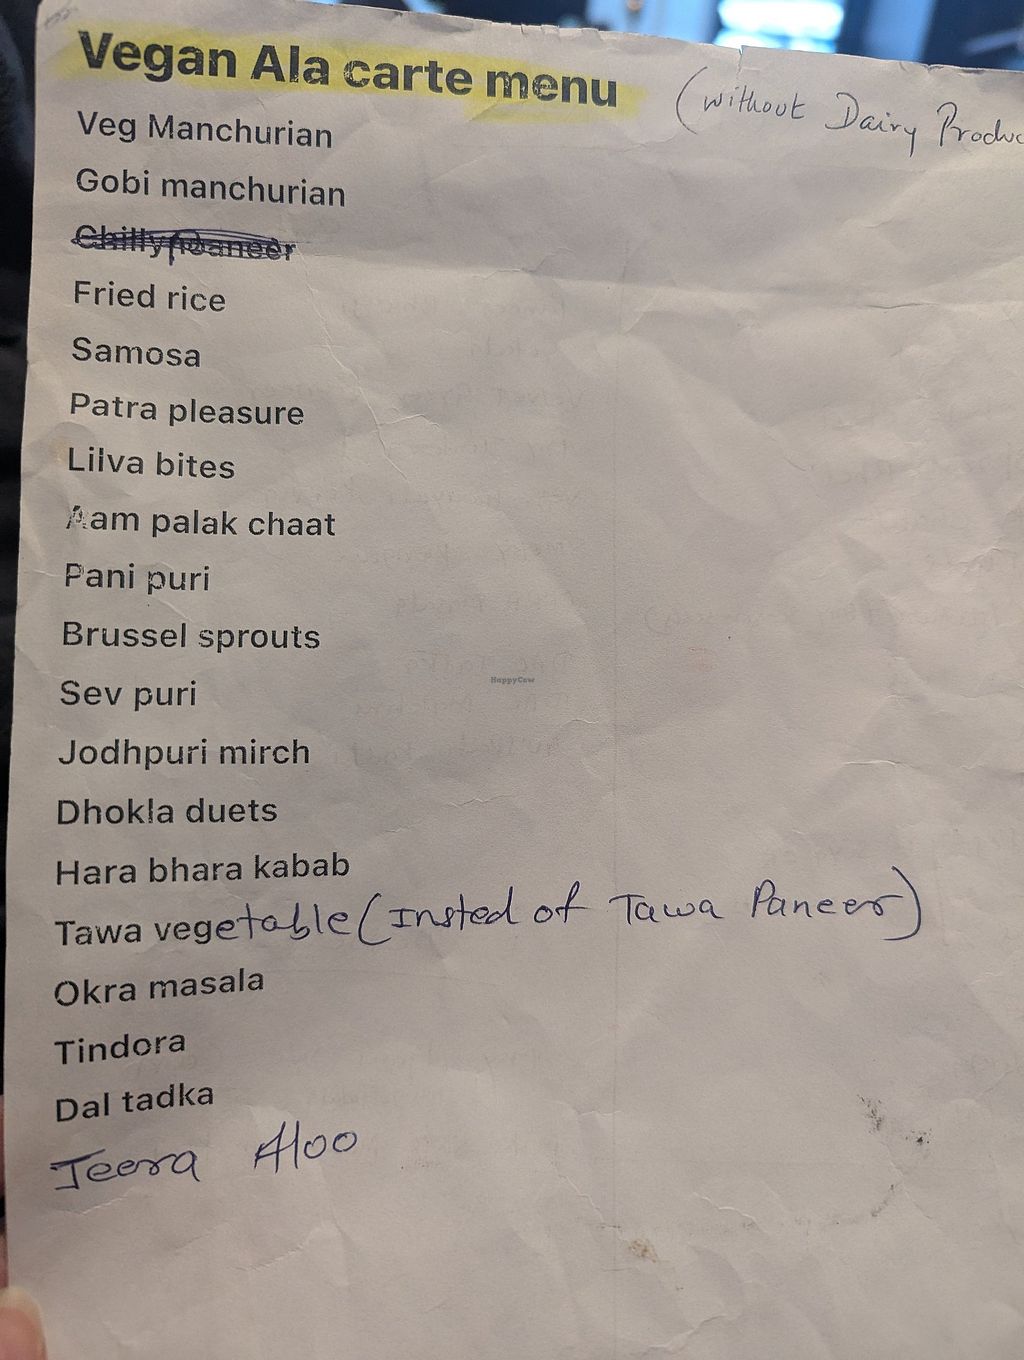 Vegan Ala carte menu (without Dairy Produc
Veg Manchurian
Gobi manchurian
Chilly Paneer
Fried rice
Samosa
Patra pleasure
Lilva bites
Aam palak chaat
Pani puri
Brussel sprouts
HappyCow
Sev puri
Jodhpuri mirch
Dhokla duets
Hara bhara kabab
Tawa vegetable (Insted of Tawa Paneer)
Okra masala
Tindora
Dal tadka
Jeera Aloo